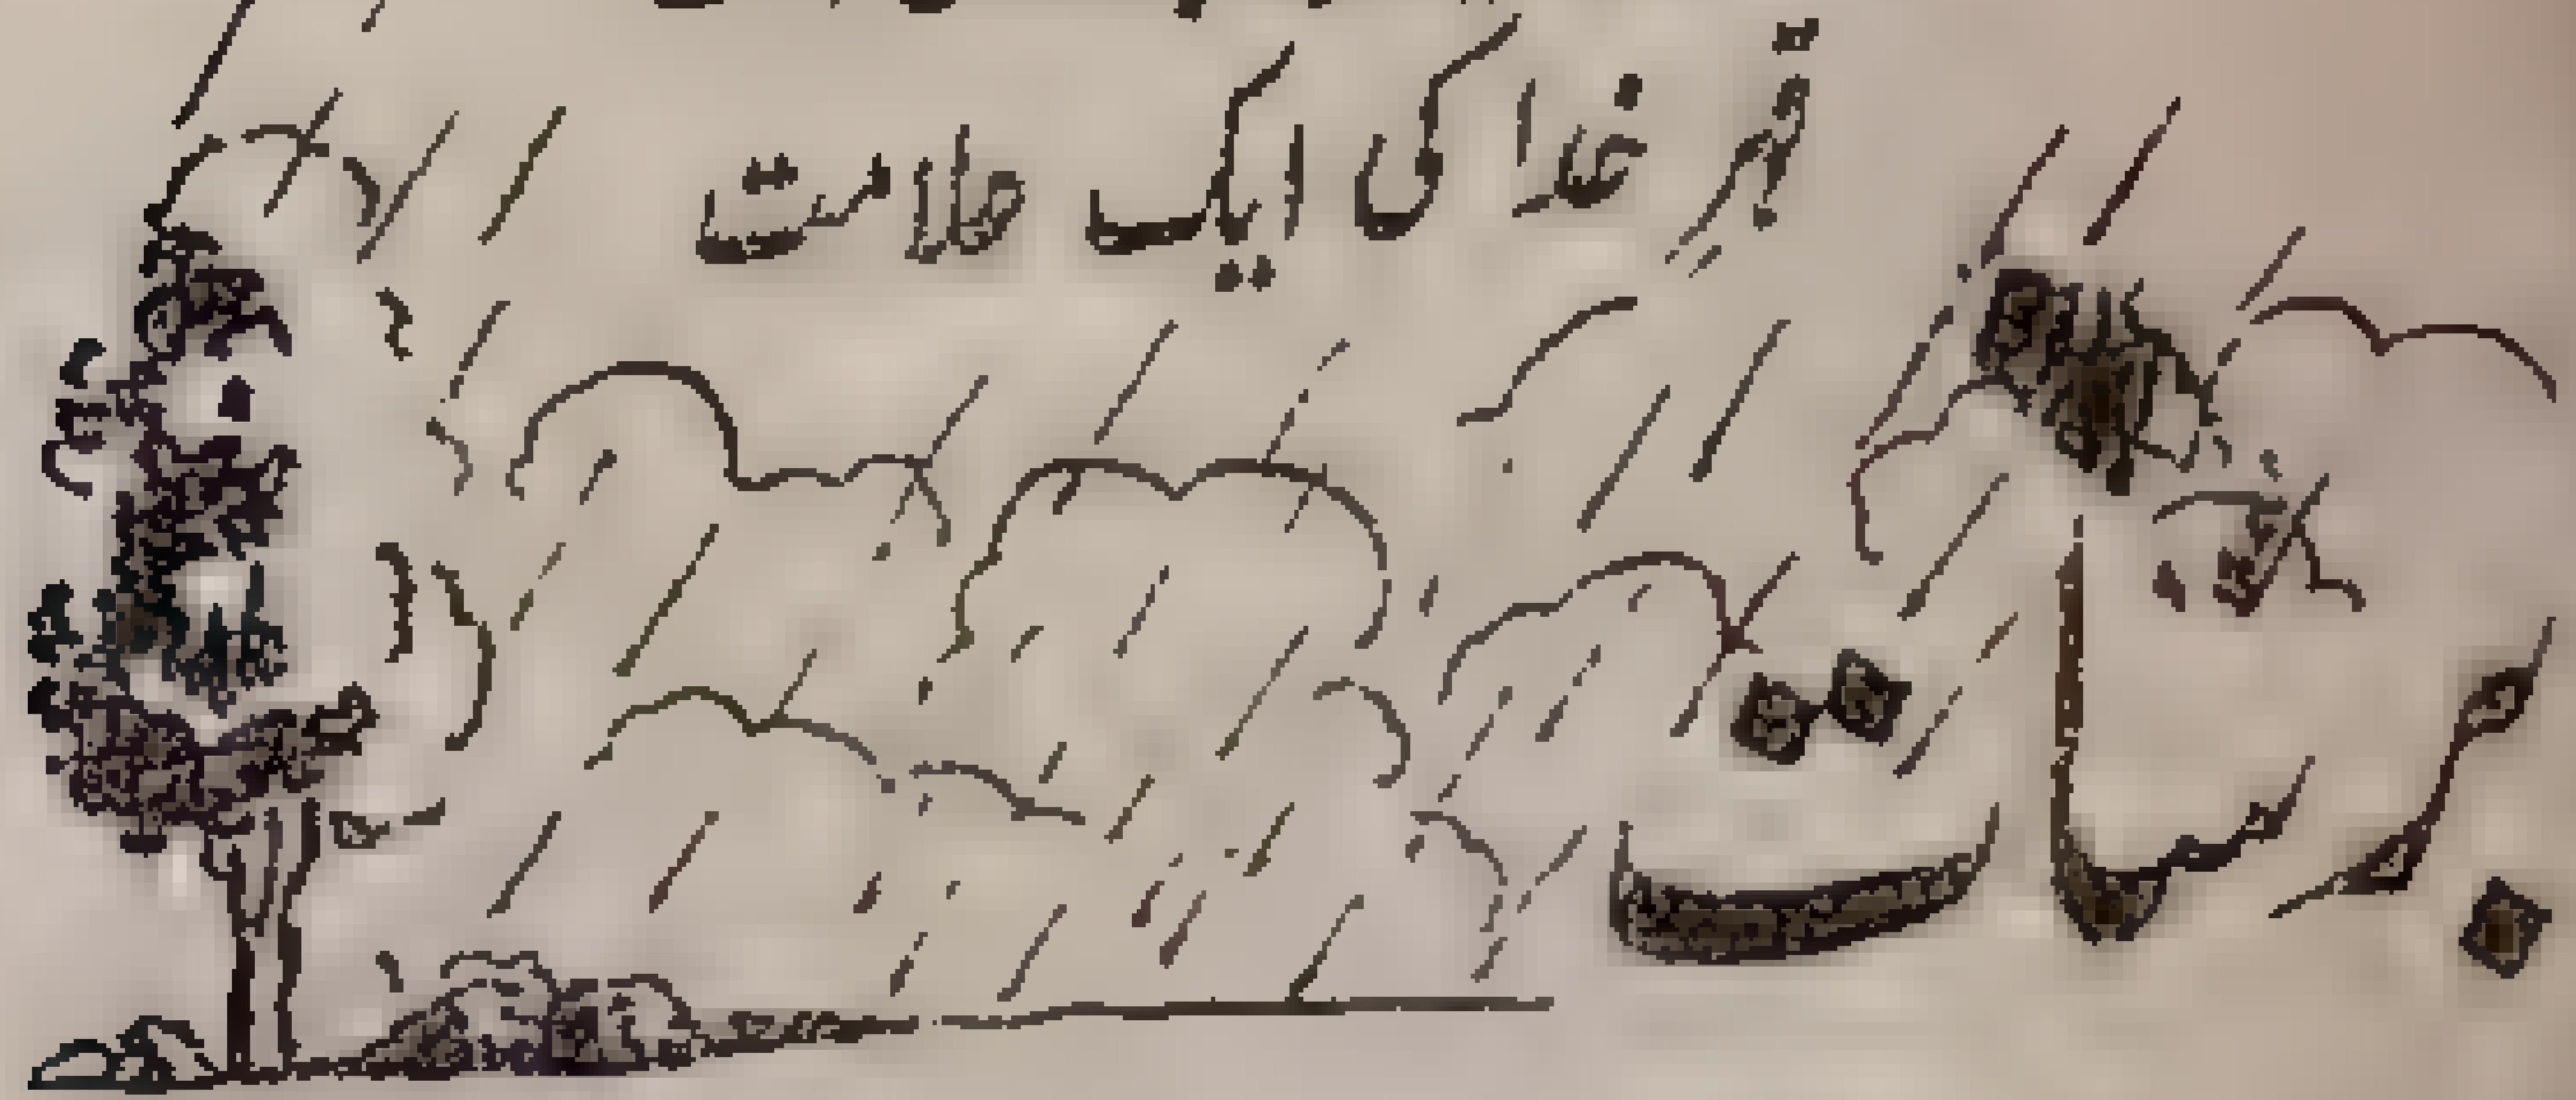 قہر خدا کی ایک علامت
برسات